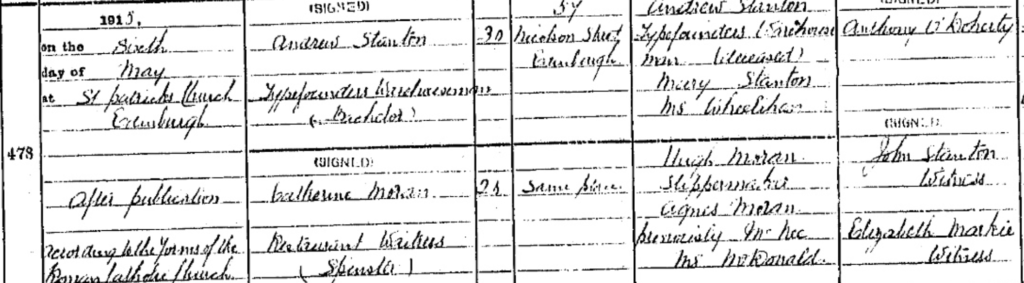 1915,
on the Sixth
day of May
at St Patricks Church
Edinburgh
478
After publication
according to the Forms of the
Roman Catholic Church
(SIGNED)
Andrew Stanton
Typefounders Warehouseman
(Bachelor)
(SIGNED)
Catherine Moran
Restaurant Waitress
(Spinster)
30
28
57
Nicolson Street
Edinburgh
Same place
Andrew Stanton
Typefounders Warehouse
man (deceased)
Mary Stanton
Ms Wheelihan
Hugh Moran
Slippermaker
Agnes Moran
previously McKee
Ms McDonald
(SIGNED)
Anthony O'Doherty
(SIGNED)
John Stanton
Witness
Elizabeth Mackie
Witness